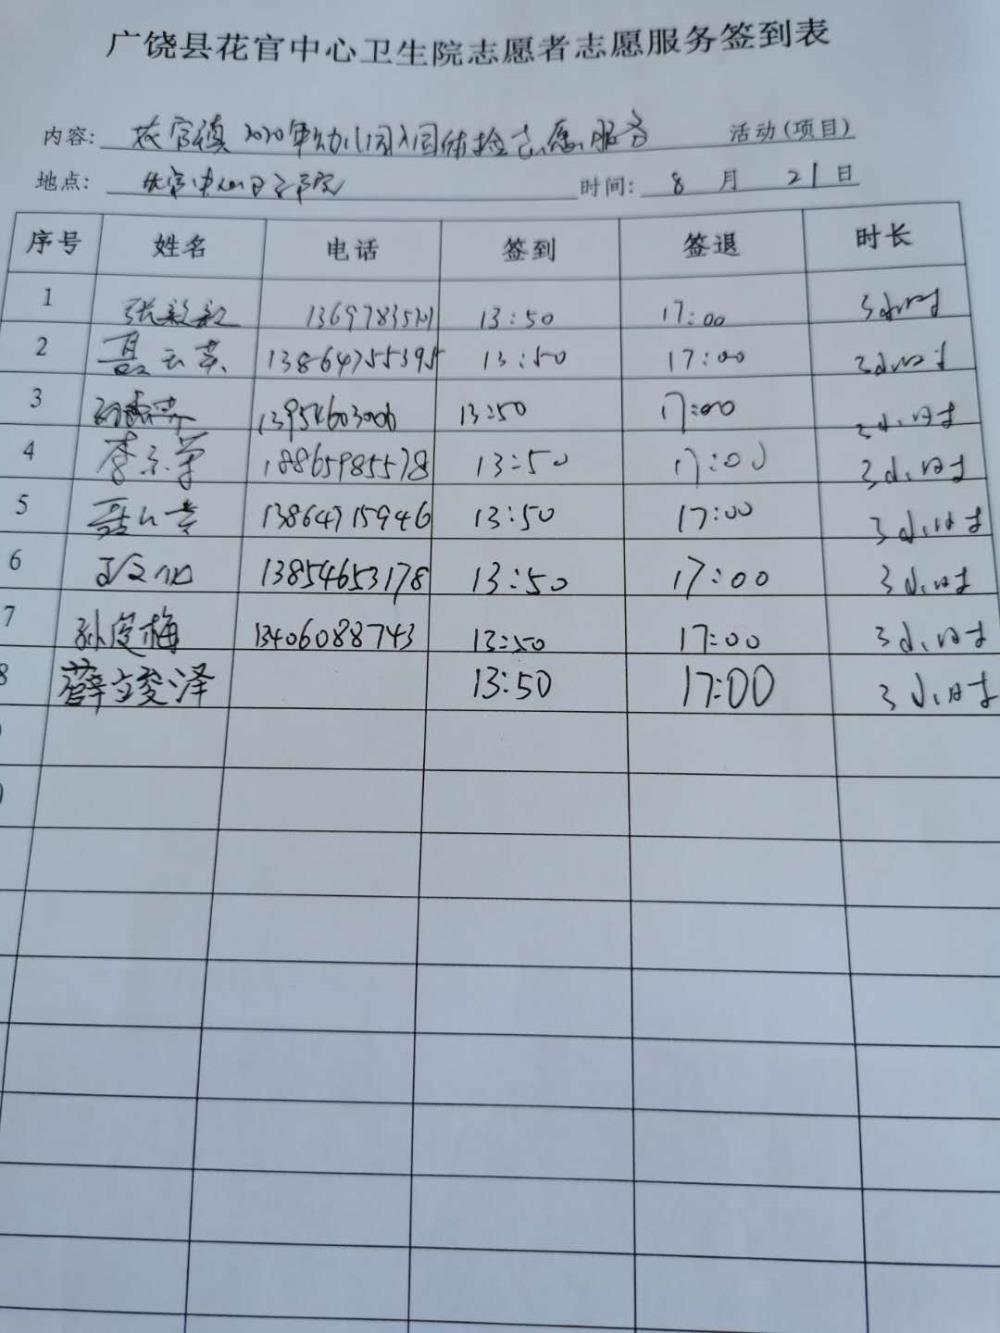 广饶县花官中心卫生院志愿者志愿服务签到表
内容: 花官镇2020年幼儿园入园体检志愿服务 活动(项目)
地点: 花官中心卫生院 时间: 8 月 21 日
序号 姓名 电话 签到 签退 时长
1 张 13:50 17:00 3小时
2 聂云英 13864755395 13:50 17:00 3小时
3 13954603006 13:50 17:00 3小时
4 李 18865985578 13:50 17:00 3小时
5 13864715946 13:50 17:00 3小时
6 13854653178 13:50 17:00 3小时
7 孙俊梅 13406088743 13:50 17:00 3小时
8 薛竣泽 13:50 17:00 3小时